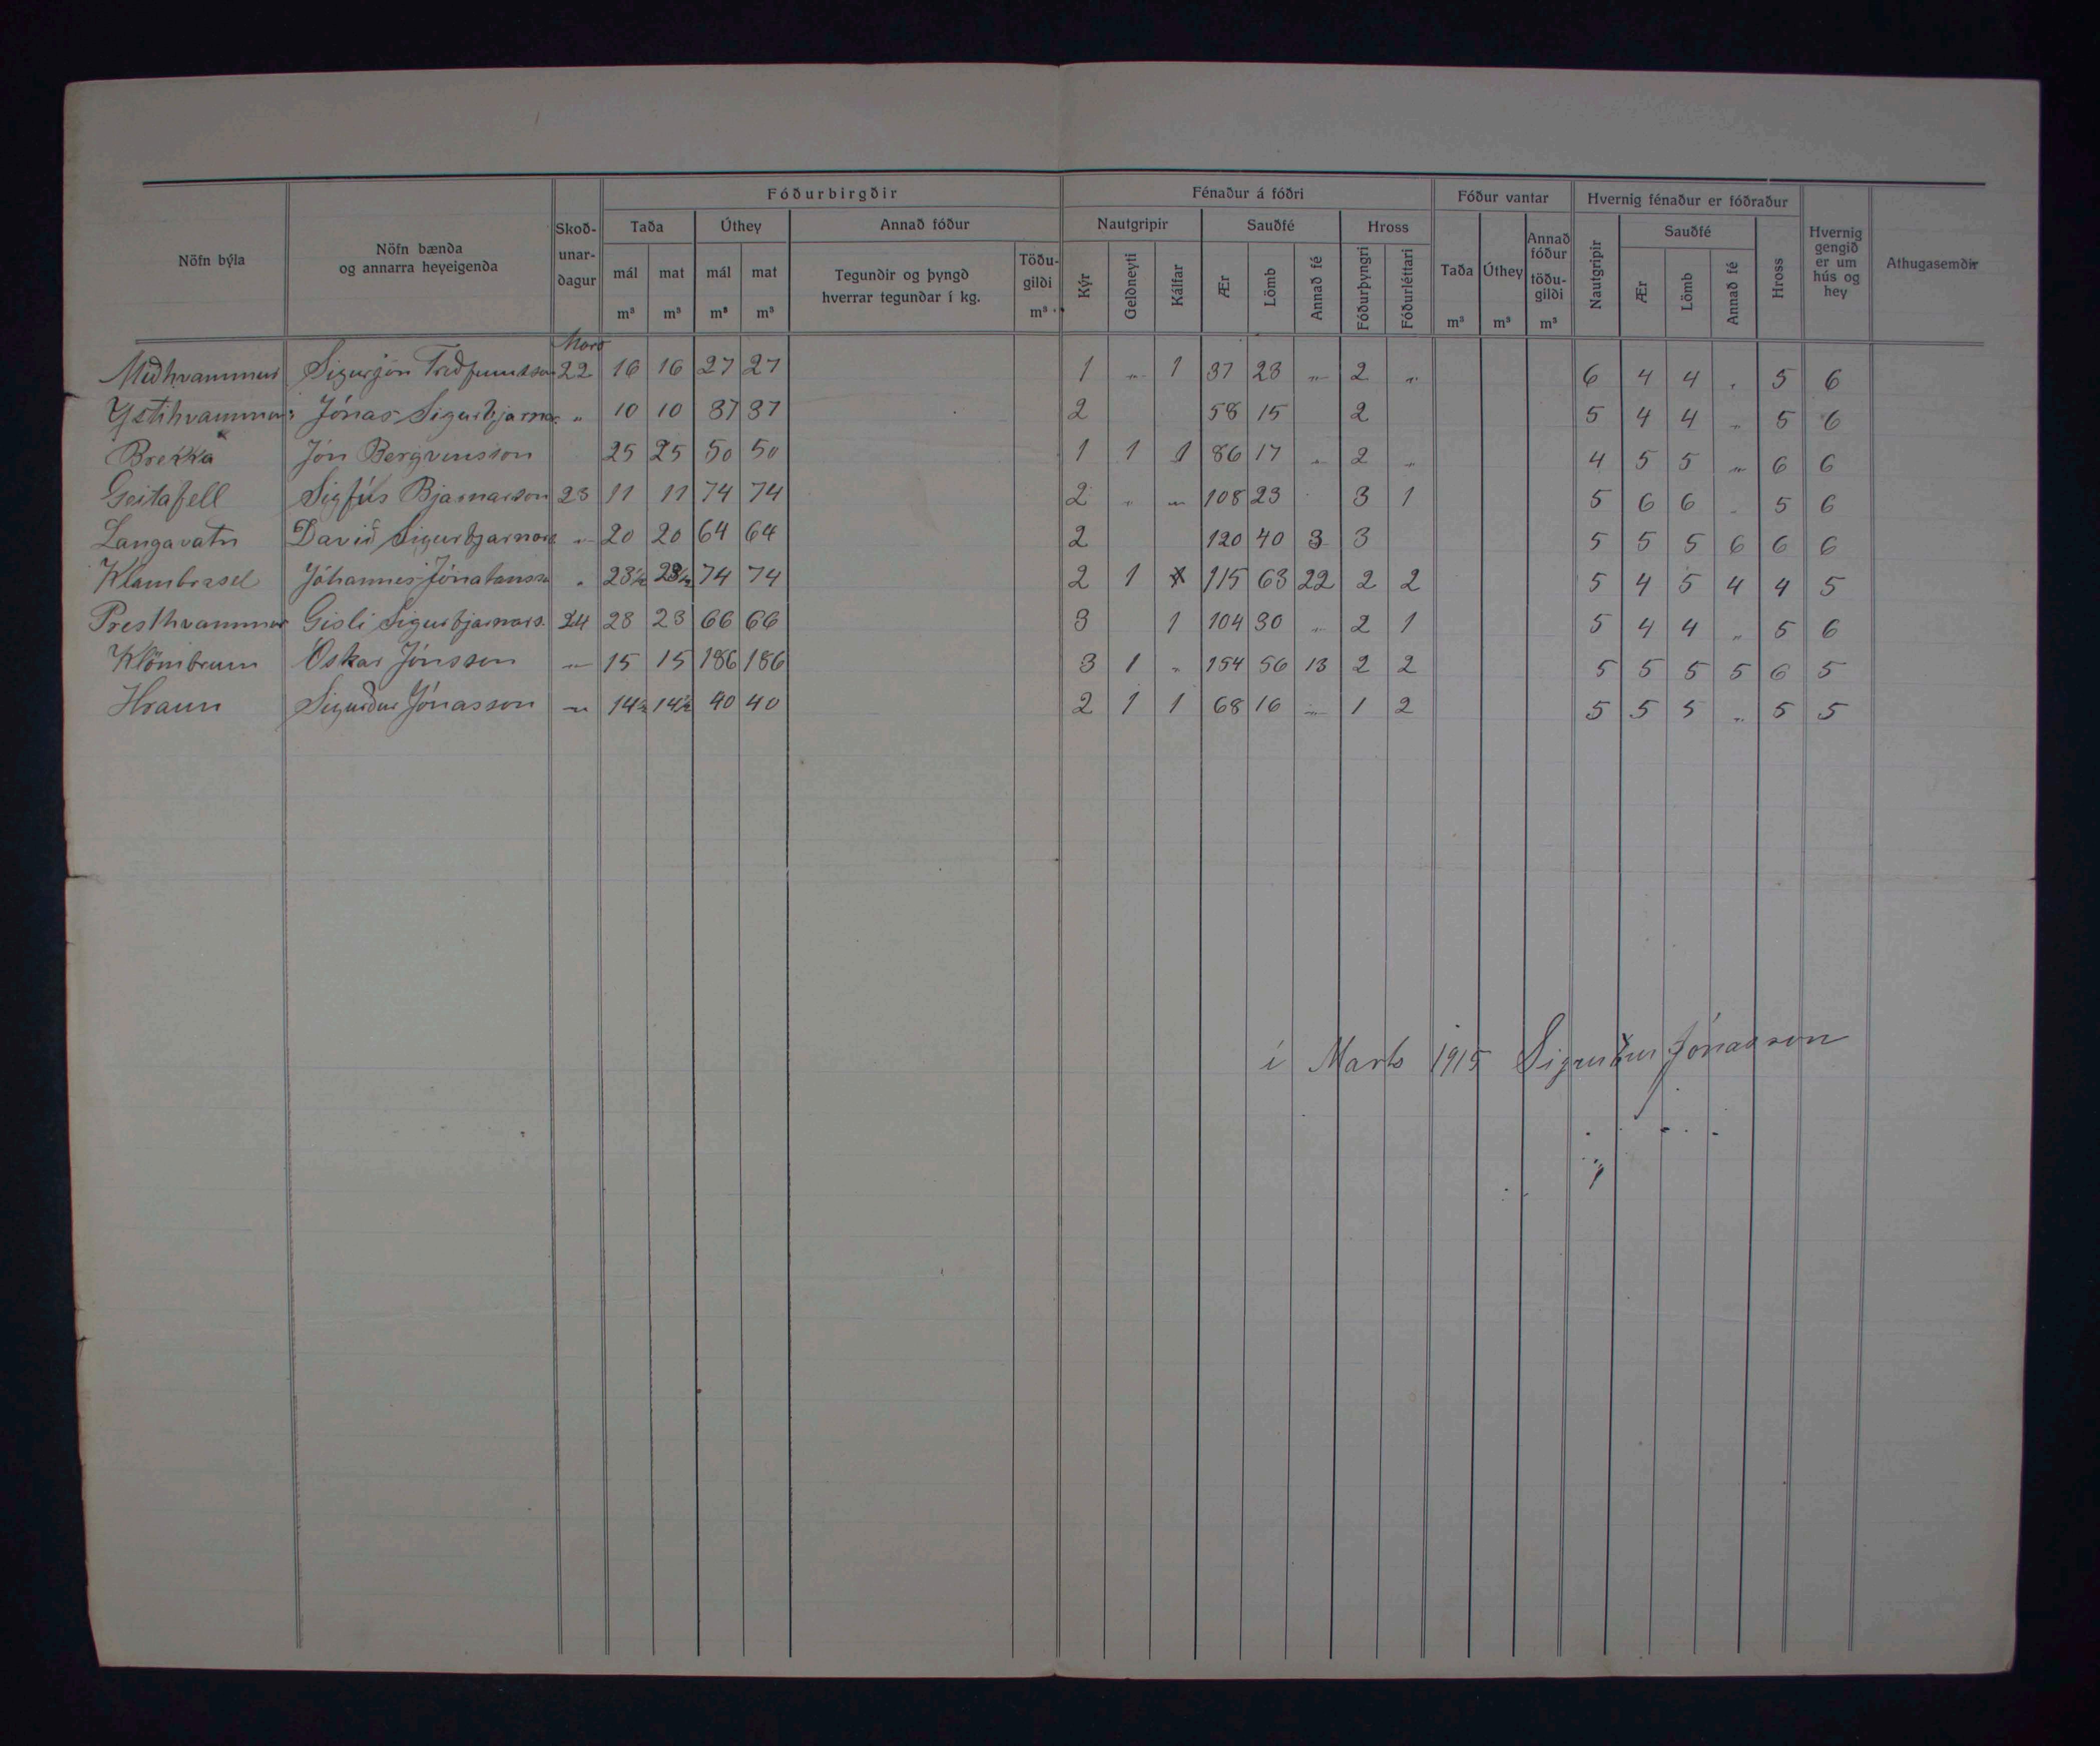 Nöfn býla | Nöfn bænda og annarra heyeigenda | Skoðunardagur | Fóðurbirgðir | Fénaður á fóðri | Fóður vantar | Hvernig fénaður er fóðraður | Hvernig gengið er um hús og hey | Athugasemdir
Taða | Úthey | Annað fóður | Nautgripir | Sauðfé | Hross | Taða m³ | Úthey m³ | Annað fóður töðugildi m³ | Nautgripir | Sauðfé | Hross
mál m³ | mat m³ | mál m³ | mat m³ | Tegundir og þyngd hverrar tegundar í kg. | Töðugildi m³ | Kýr | Geldneyti | Kálfar | Ær | Lömb | Annað fé | Fóðurþyngri | Fóðurléttari | Ær | Lömb | Annað fé
Miðhvammur | Sigurjón | 22 | 16 | 16 | 27 | 27 | 1 | „ | 1 | 37 | 23 | „ | 2 | „ | 6 | 4 | 4 | „ | 5 | 6
Ystihvammur | Jónas Sigurbjarnar | „ | 10 | 10 | 37 | 37 | 2 | 58 | 15 | 2 | 5 | 4 | 4 | „ | 5 | 6
Brekka | Jón Bergvinsson | 25 | 25 | 50 | 50 | 1 | 1 | 1 | 86 | 17 | „ | 2 | „ | 4 | 5 | 5 | „ | 6 | 6
Geitafell | Sigfús Bjarnarson | 23 | 11 | 11 | 74 | 74 | 2 | „ | „ | 108 | 23 | 3 | 1 | 5 | 6 | 6 | „ | 5 | 6
Langavatn | Davíð Sigurbjarnars | „ | 20 | 20 | 64 | 64 | 2 | 120 | 40 | 3 | 3 | 5 | 5 | 5 | 6 | 6 | 6
Klambrasel | Jóhannes Jónatansson | „ | 23½ | 23½ | 74 | 74 | 2 | 1 | 115 | 63 | 22 | 2 | 2 | 5 | 4 | 5 | 4 | 4 | 5
Presthvammur | Gísli Sigurbjarnars. | 24 | 23 | 23 | 66 | 66 | 3 | 1 | 104 | 30 | „ | 2 | 1 | 5 | 4 | 4 | „ | 5 | 6
Klömbrum | Óskar Jónsson | „ | 15 | 15 | 186 | 186 | 3 | 1 | „ | 154 | 56 | 13 | 2 | 2 | 5 | 5 | 5 | 5 | 6 | 5
Hraun | Sigurður Jónasson | „ | 14½ | 14½ | 40 | 40 | 2 | 1 | 1 | 68 | 16 | „ | 1 | 2 | 5 | 5 | 5 | „ | 5 | 5
í Marts 1915 Sigurður Jónasson